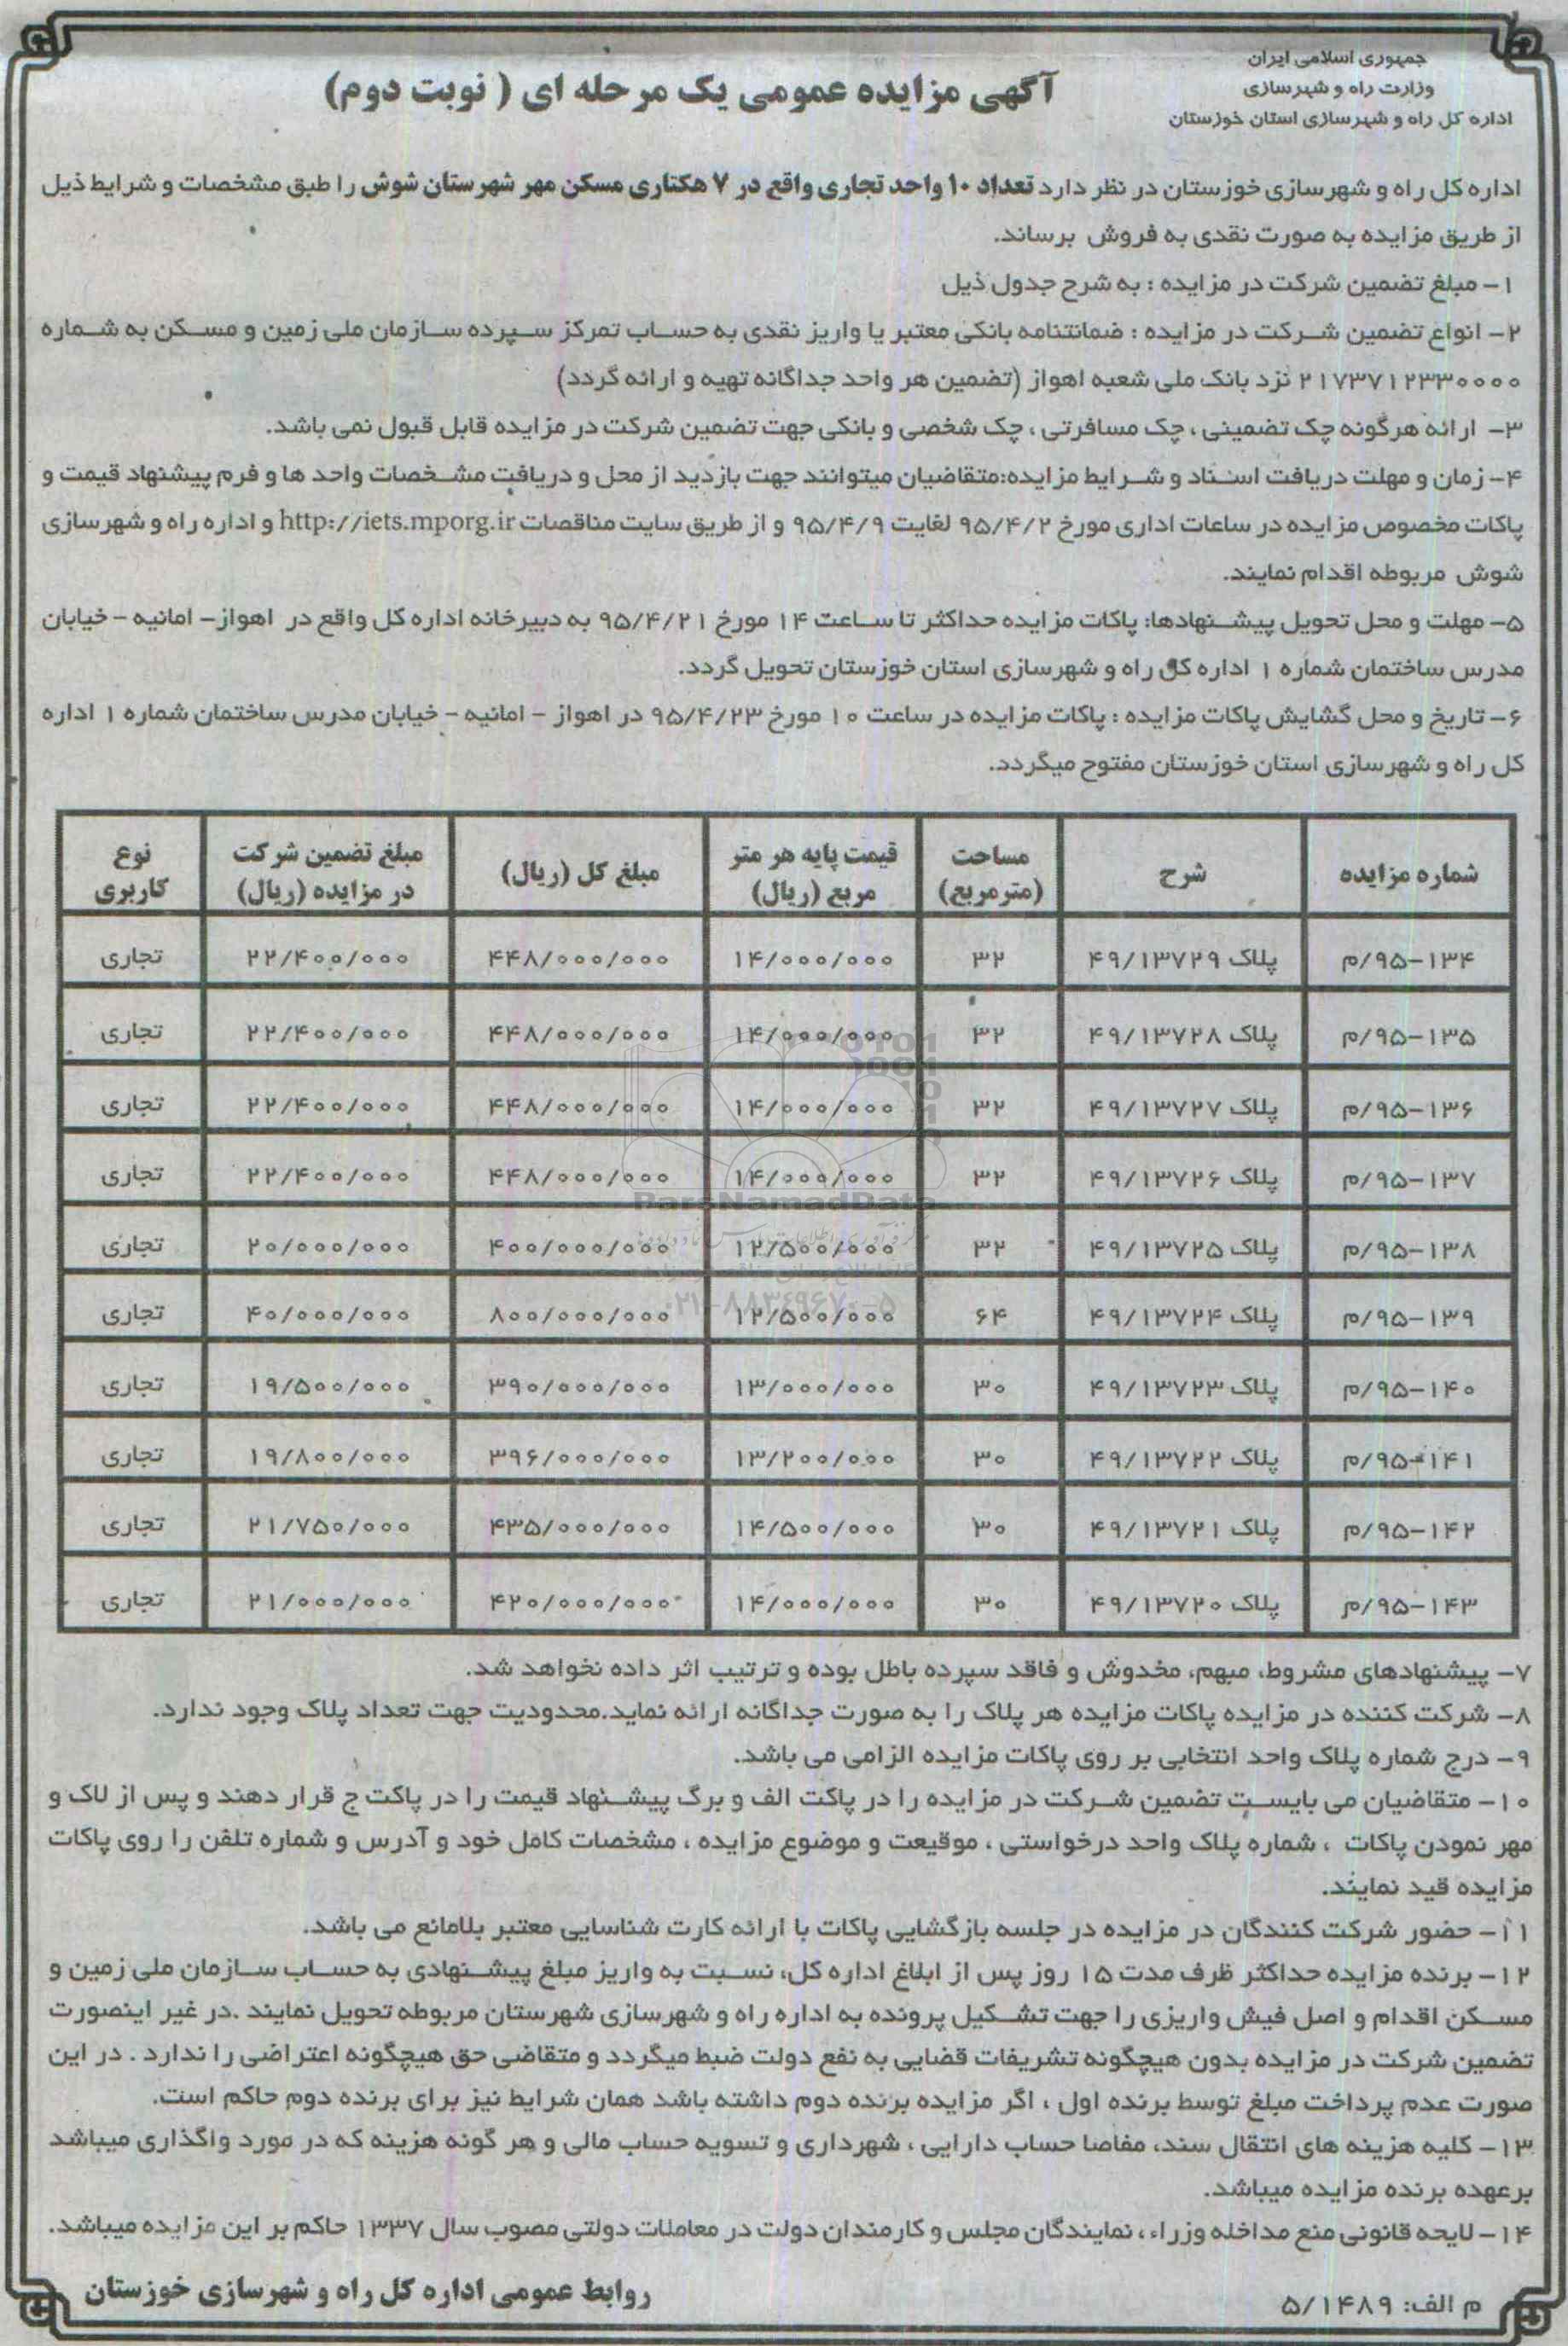 جمهوری اسلامی ایران
وزارت راه و شهرسازی
اداره کل راه و شهرسازی استان خوزستان
آگهی مزایده عمومی یک مرحله ای ( نوبت دوم)
اداره کل راه و شهرسازی خوزستان در نظر دارد تعداد ۱۰ واحد تجاری واقع در ۷ هکتاری مسکن مهر شهرستان شوش را طبق مشخصات و شرایط ذیل
از طریق مزایده به صورت نقدی به فروش برساند.
۱- مبلغ تضمین شرکت در مزایده : به شرح جدول ذیل
۲- انواع تضمین شرکت در مزایده : ضمانتنامه بانکی معتبر یا واریز نقدی به حساب تمرکز سپرده سازمان ملی زمین و مسکن به شماره
۲۱۷۳۷۱۲۳۳۰۰۰۰ نزد بانک ملی شعبه اهواز (تضمین هر واحد جداگانه تهیه و ارائه گردد)
۳- ارائه هرگونه چک تضمینی ، چک مسافرتی ، چک شخصی و بانکی جهت تضمین شرکت در مزایده قابل قبول نمی باشد.
۴- زمان و مهلت دریافت اسناد و شرایط مزایده:متقاضیان میتوانند جهت بازدید از محل و دریافت مشخصات واحد ها و فرم پیشنهاد قیمت و
پاکات مخصوص مزایده در ساعات اداری مورخ ۹۵/۴/۲ لغایت ۹۵/۴/۹ و از طریق سایت مناقصات http://iets.mporg.ir و اداره راه و شهرسازی
شوش مربوطه اقدام نمایند.
۵- مهلت و محل تحویل پیشنهادها: پاکات مزایده حداکثر تا ساعت ۱۴ مورخ ۹۵/۴/۲۱ به دبیرخانه اداره کل واقع در اهواز- امانیه - خیابان
مدرس ساختمان شماره ۱ اداره کل راه و شهرسازی استان خوزستان تحویل گردد.
۶- تاریخ و محل گشایش پاکات مزایده : پاکات مزایده در ساعت ۱۰ مورخ ۹۵/۴/۲۳ در اهواز - امانیه - خیابان مدرس ساختمان شماره ۱ اداره
کل راه و شهرسازی استان خوزستان مفتوح میگردد.
شماره مزایده شرح مساحت (مترمربع) قیمت پایه هر متر مربع (ریال) مبلغ کل (ریال) مبلغ تضمین شرکت در مزایده (ریال) نوع کاربری
۱۳۴-۹۵/م پلاک ۴۹/۱۳۷۲۹ ۳۲ ۱۴/۰۰۰/۰۰۰ ۴۴۸/۰۰۰/۰۰۰ ۲۲/۴۰۰/۰۰۰ تجاری
۱۳۵-۹۵/م پلاک ۴۹/۱۳۷۲۸ ۳۲ ۱۴/۰۰۰/۰۰۰ ۴۴۸/۰۰۰/۰۰۰ ۲۲/۴۰۰/۰۰۰ تجاری
۱۳۶-۹۵/م پلاک ۴۹/۱۳۷۲۷ ۳۲ ۱۴/۰۰۰/۰۰۰ ۴۴۸/۰۰۰/۰۰۰ ۲۲/۴۰۰/۰۰۰ تجاری
۱۳۷-۹۵/م پلاک ۴۹/۱۳۷۲۶ ۳۲ ۱۴/۰۰۰/۰۰۰ ۴۴۸/۰۰۰/۰۰۰ ۲۲/۴۰۰/۰۰۰ تجاری
۱۳۸-۹۵/م پلاک ۴۹/۱۳۷۲۵ ۳۲ ۱۲/۵۰۰/۰۰۰ ۴۰۰/۰۰۰/۰۰۰ ۲۰/۰۰۰/۰۰۰ تجاری
۱۳۹-۹۵/م پلاک ۴۹/۱۳۷۲۴ ۶۴ ۱۲/۵۰۰/۰۰۰ ۸۰۰/۰۰۰/۰۰۰ ۴۰/۰۰۰/۰۰۰ تجاری
۱۴۰-۹۵/م پلاک ۴۹/۱۳۷۲۳ ۳۰ ۱۳/۰۰۰/۰۰۰ ۳۹۰/۰۰۰/۰۰۰ ۱۹/۵۰۰/۰۰۰ تجاری
۱۴۱-۹۵/م پلاک ۴۹/۱۳۷۲۲ ۳۰ ۱۳/۲۰۰/۰۰۰ ۳۹۶/۰۰۰/۰۰۰ ۱۹/۸۰۰/۰۰۰ تجاری
۱۴۲-۹۵/م پلاک ۴۹/۱۳۷۲۱ ۳۰ ۱۴/۵۰۰/۰۰۰ ۴۳۵/۰۰۰/۰۰۰ ۲۱/۷۵۰/۰۰۰ تجاری
۱۴۳-۹۵/م پلاک ۴۹/۱۳۷۲۰ ۳۰ ۱۴/۰۰۰/۰۰۰ ۴۲۰/۰۰۰/۰۰۰ ۲۱/۰۰۰/۰۰۰ تجاری
ParsNamadData
۰۲۱-۸۸۳۴۹۶۷۰-۵
۷- پیشنهادهای مشروط، مبهم، مخدوش و فاقد سپرده باطل بوده و ترتیب اثر داده نخواهد شد.
۸- شرکت کننده در مزایده پاکات مزایده هر پلاک را به صورت جداگانه ارائه نماید.محدودیت جهت تعداد پلاک وجود ندارد.
۹- درج شماره پلاک واحد انتخابی بر روی پاکات مزایده الزامی می باشد.
۱۰- متقاضیان می بایست تضمین شرکت در مزایده را در پاکت الف و برگ پیشنهاد قیمت را در پاکت ج قرار دهند و پس از لاک و
مهر نمودن پاکات ، شماره پلاک واحد درخواستی ، موقیعت و موضوع مزایده ، مشخصات کامل خود و آدرس و شماره تلفن را روی پاکات
مزایده قید نمایند.
۱۱- حضور شرکت کنندگان در مزایده در جلسه بازگشایی پاکات با ارائه کارت شناسایی معتبر بلامانع می باشد.
۱۲- برنده مزایده حداکثر ظرف مدت ۱۵ روز پس از ابلاغ اداره کل، نسبت به واریز مبلغ پیشنهادی به حساب سازمان ملی زمین و
مسکن اقدام و اصل فیش واریزی را جهت تشکیل پرونده به اداره راه و شهرسازی شهرستان مربوطه تحویل نمایند .در غیر اینصورت
تضمین شرکت در مزایده بدون هیچگونه تشریفات قضایی به نفع دولت ضبط میگردد و متقاضی حق هیچگونه اعتراضی را ندارد . در این
صورت عدم پرداخت مبلغ توسط برنده اول ، اگر مزایده برنده دوم داشته باشد همان شرایط نیز برای برنده دوم حاکم است.
۱۳- کلیه هزینه های انتقال سند، مفاصا حساب دارایی ، شهرداری و تسویه حساب مالی و هر گونه هزینه که در مورد واگذاری میباشد
برعهده برنده مزایده میباشد.
۱۴- لایحه قانونی منع مداخله وزراء ، نمایندگان مجلس و کارمندان دولت در معاملات دولتی مصوب سال ۱۳۳۷ حاکم بر این مزایده میباشد.
روابط عمومی اداره کل راه و شهرسازی خوزستان
م الف: ۵/۱۴۸۹